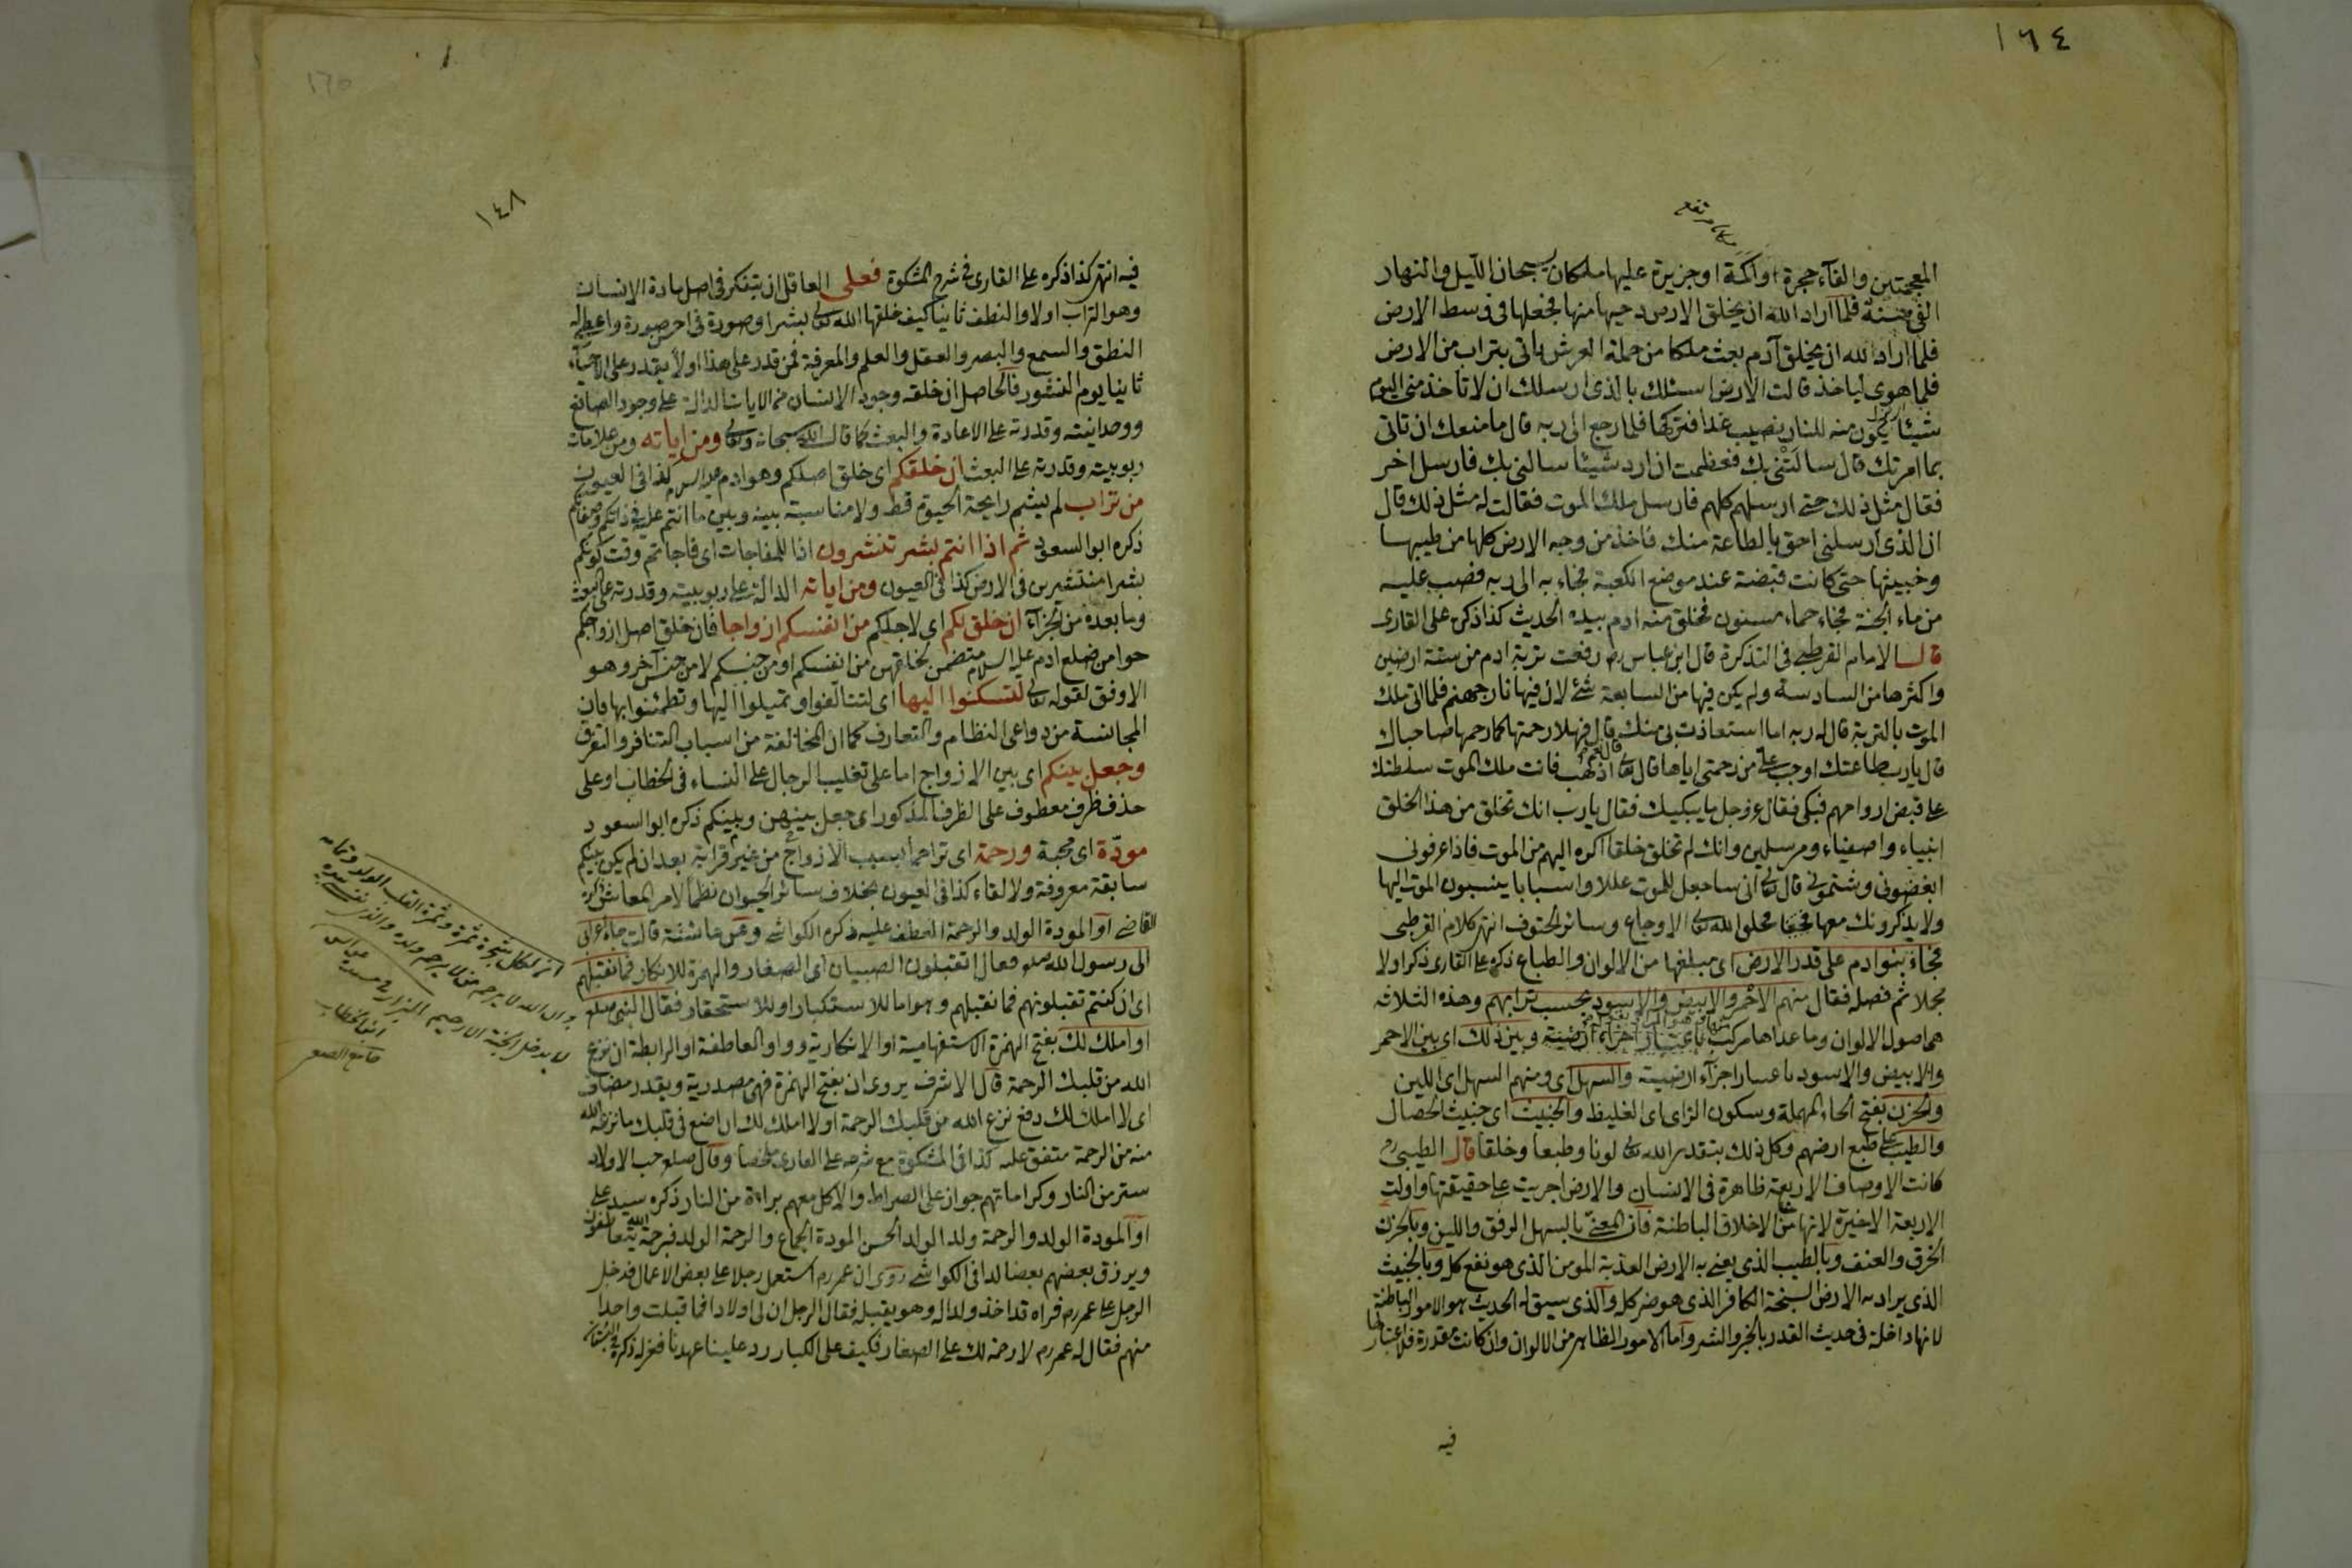 ١٦٤
المعجمتين والفاء حجرة او اكمة او جزيرة عليها ملكان يسبحان الليل والنهار
الفى سنة فلما اراد الله ان يخلق الارض دحيها منها فجعلها فى وسط الارض
فلما اراد الله ان يخلق آدم بعث ملكا من حملة العرش ياتى بتراب من الارض
فلما هوى لياخذ قالت الارض اسئلك بالذى ارسلك ان لا تاخذ منى اليوم
شيئا يكون منه للنار نصيب غدا فتركها فلما رجع الى ربه قال ما منعك ان تاتى
بما امرتك قال سالتنى بك فعظمت ان ارد شيئا سالنى بك فارسل اخر
فقال مثل ذلك حتى ارسلهم كلهم فارسل ملك الموت فقالت له مثل ذلك قال
ان الذى ارسلنى احق بالطاعة منك فاخذ من وجه الارض كلها من طيبها
وخبيثها حتى كانت قبضة عند موضع الكعبة فجاء به الى ربه فصب عليه
من ماء الجنة فجاء حماء مسنون فخلق منه ادم بيده الحديث كذا ذكره على القارى
قال الامام القرطبى فى التذكرة قال ابن عباس رض رفعت تربة ادم من ستة ارضين
واكثرها من السادسة ولم يكن فيها من السابعة شئ لان فيها نار جهنم فلما اتى ملك
الموت بالتربة قال له ربه اما استعاذت بى منك قال فهلا رحمتها كما رحمها صاحباك
قال يارب طاعتك اوجب على من رحمتى اياها قال تعالى اذهب فانت ملك الموت سلطتك
على قبض ارواحهم فبكى فقال عز وجل ما يبكيك فقال يا رب انك تخلق من هذا الخلق
انبياء واصفياء ومرسلين وانك لم تخلق خلقا اكره اليهم من الموت فاذا عرفونى
ابغضونى وشتمونى قال تعالى انى ساجعل للموت عللا واسبابا ينسبون الموت اليها
ولا يذكرونك معها فخلق الله تعالى الاوجاع وسائر الحتوف انتهى كلام القرطبى
فجاء بنوا دم على قدر الارض اى مبلغها من الالوان والطباع ذكره على القارى ذكر اولا
مجلا ثم فصله فقال منهم الاحمر والابيض والاسود بحسب ترابهم وهذه الثلاثه
هم اصول الالوان وما عداها مركب باعتبار اجزاء ارضية وبين ذلك اى بين الاحمر
والابيض والاسود باعتبار اجزاء ارضية والسهل اى ومنهم السهل اى اللين
والحزن بفتح الحاء المهملة وسكون الزاى اى الغليظ والخبيث اى خبيث الخصال
والطيب على طبع ارضهم وكل ذلك بتقدير الله تعالى لونا وطبعا وخلقا قال الطيبى رح
كانت الاوصاف الاربعة ظاهرة فى الانسان والارض اجريت على حقيقتها واولت
الاربعة الاخيرة لانها من الاخلاق الباطنة فان المعنى بالسهل الرفق واللين وبالحزن
الخرق والعنف وبالطيب الذى يعنى به الارض العذبة المومن الذى هو نفع كل وبالخبيث
الذى يراد به الارض السبخة الكافر الذى هو ضر كله والذى سيق له الحديث هو الامور الباطنة
لانها داخلة فى حديث القدر بالخير والشر واما الامور الظاهر من الالوان وان كانت مقدرة فلا اعتبار لها
فيه
١٦٥
١٤٨
فيه انتهى كذا ذكره على القارى فى شرح المشكوة فعلى العاقل ان يتفكر فى اصل مادة الانسان
وهو التراب اولا والنطف ثانيا كيف خلقها الله تعالى بشرا وصوره فى احسن صورة واعطى له
النطق والسمع والبصر والعقل والعلم والمعرفة فمن قدر على هذا اولا يقدر على الاحياء
ثانيا يوم النشور فالحاصل ان خلقه وجود الانسان من الايات الدالة على وجود الصانع
ووحدانيته وقدرته على الاعادة والبعث كما قال الله سبحانه وتعالى ومن اياته ومن علامات
ربوبيته وقدرته على البعث ان خلقكم اى خلق اصلكم وهو ادم عليه السلام كذا فى العيون
من تراب لم يشم رايحة الحيوة قط ولا مناسبة بينه وبين ما انتم عليه فى ذاتكم وصفاتكم
ذكره ابو السعود ثم اذا انتم بشر تنتشرون اذا للمفاجات اى فاجاتم وقت كونكم
بشرا منتشرين فى الارض كذا فى العيون ومن اياته الدالة على ربوبيته وقدرته على البعث
وما بعده من الجزاء ان خلق لكم اى لاجلكم من انفسكم ازواجا فان خلق اصل ازواجكم
حوا من ضلع ادم عليه السلام متضمن لخلقهن من انفسكم او من جنسكم لا من جنس آخر وهو
الاوفق لقوله تعالى لتسكنوا اليها اى لتتالفوا وتميلوا اليها وتطمئنوا بها فان
المجانسة من دواعى النظام والتعارف كما ان المخالفة من اسباب التنافر والتفرق
وجعل بينكم اى بين الازواج اما على تغليب الرجال على النساء فى الخطاب او على
حذف ظرف معطوف على الظرف المذكور اى جعل بينهن وبينكم ذكره ابو السعود
مودة اى محبة ورحمة اى تراحما بسبب الازواج من غير قرابة بعد ان لم يكن بينكم
سابقة معروفة ولا لقاء كذا فى العيون بخلاف سائر الحيوان نظما لامر المعاش ذكره
القاضى او المودة الولد والرحمة العطف عليه ذكره الكواشى وعن عائشة قالت جاء اعرابى
الى رسول الله صلعم فقال اتقبلون الصبيان اى الصغار والهمزة للانكار فما نقبلهم
اى ان كنتم تقبلونهم فما نقبلهم وهو اما للاستكبار او للاستحقار فقال النبى صلعم
او املك لك بفتح الهمزة الاستفهامية او الانكارية وواو العاطفة او الرابطة ان نزع
الله من قلبك الرحمة قال الاشرف يروى ان بفتح الهمزة فهى مصدرية ويقدر مضاف
اى لا املك لك دفع نزع الله من قلبك الرحمة او لا املك لك ان اضع فى قلبك ما نزعه الله
منه من الرحمة متفق عليه كذا فى المشكوة مع شرحه على القارى ملخصا وقال صلعم حب الاولاد
ستر من النار وكراماتهم جواز على الصراط والاكل معهم براءة من النار ذكره سيد على
او المودة الولد والرحمة ولد الولد الحسن المودة الجماع والرحمة الولد فبرحمة الله يتعاطفون
ويرزق بعضهم بعضا كذا فى الكواشى روى ان عمر رض استعمل رجلا على بعض الاعمال فدخل
الرجل على عمر رض فراه قد اخذ ولدا له وهو يقبله فقال الرجل ان لى اولادا فما قبلت واحدا
منهم فقال له عمر رض لا رحمة لك على الصغار فكيف على الكبار رد علينا عهدنا فعزله ذكره فى البستان
ان لكل شجرة ثمرة وثمرة القلب الولد
ان الله لا يرحم من لا يرحم ولده والذى نفسى بيده
لا يدخل الجنة الا رحيم البزار فى مسنده عن ابن